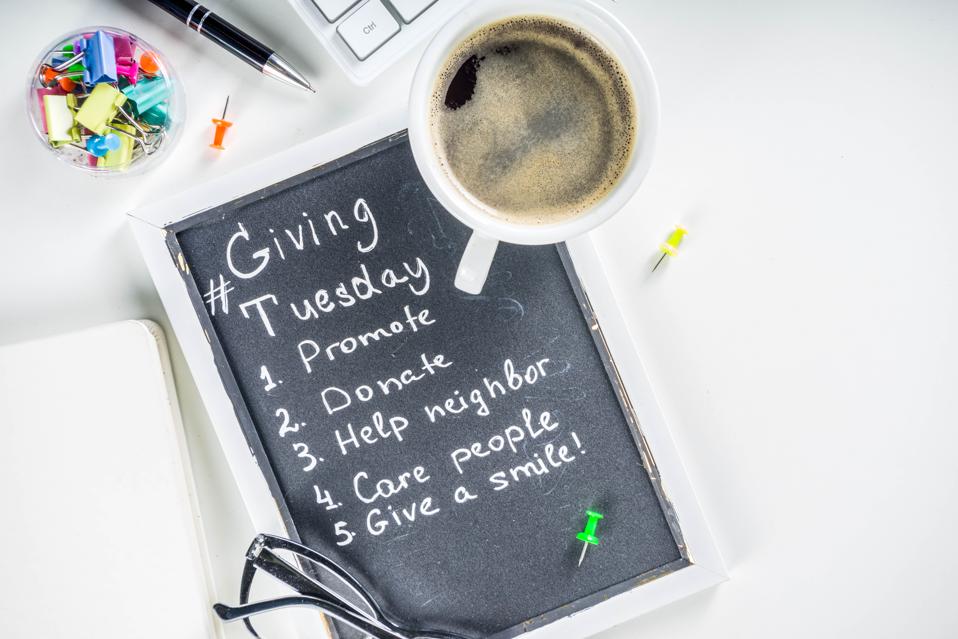 Ctrl
#Giving
Tuesday
1. Promote
2. Donate
3. Help neighbor
4. Care people
5. Give a smile!